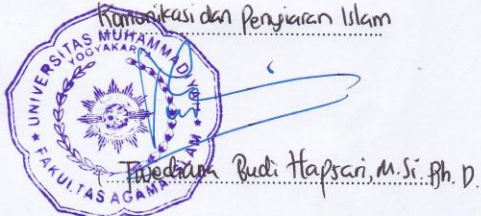 Komunikasi dan Penyiaran Islam
UNIVERSITAS MUHAMMADIYAH
YOGYAKARTA
FAKULTAS AGAMA ISLAM
Twediana Budi Hapsari, M.Si. Ph.D.